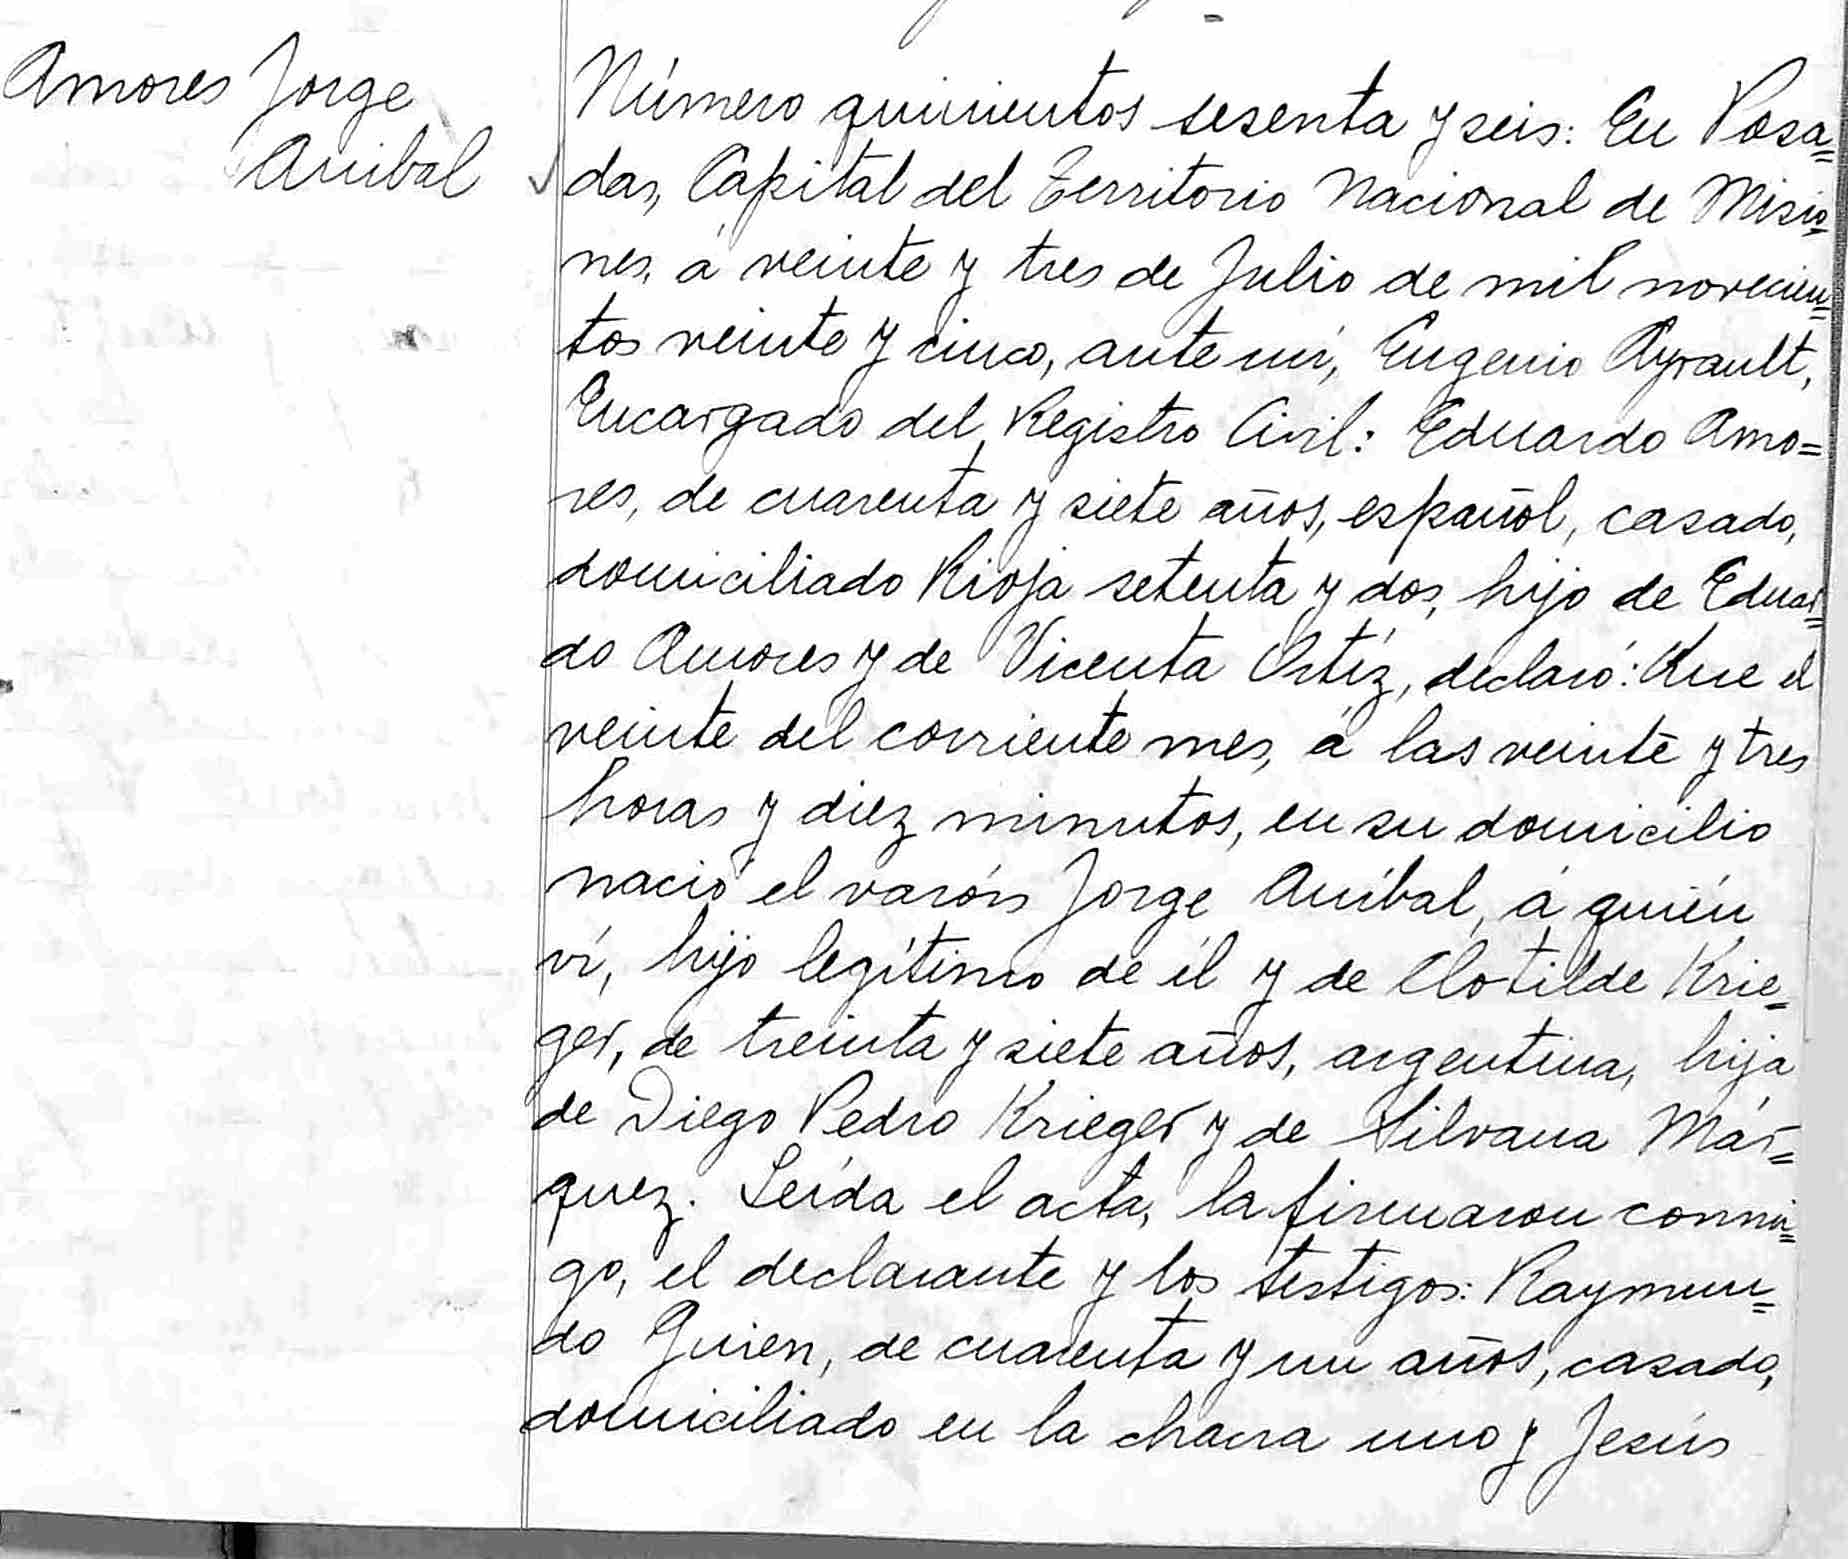 Amores Jorge
Anibal
Número quinientos sesenta y seis: En Posa=
das, Capital del Territorio Nacional de Misio=
nes, á veinte y tres de Julio de mil novecien=
tos veinte y cinco, ante mí, Eugenio Ayrault,
Encargado del Registro Civil: Eduardo Amo=
res, de cuarenta y siete años, español, casado,
domiciliado Rioja setenta y dos, hijo de Eduar=
do Amores y de Vicenta Ortíz, declaró: Que el
veinte del corriente mes, á las veinte y tres
horas y diez minutos, en su domicilio
nació el varón Jorge Aníbal, á quién
ví, hijo legítimo de él y de Clotilde Krie=
ger, de treinta y siete años, argentina, hija
de Diego Pedro Krieger y de Silvana Már=
quez. Leída el acta, la firmaron conmi=
go, el declarante y los testigos: Raymun=
do Guien, de cuarenta y un años, casado,
domiciliado en la chacra uno y Jesús